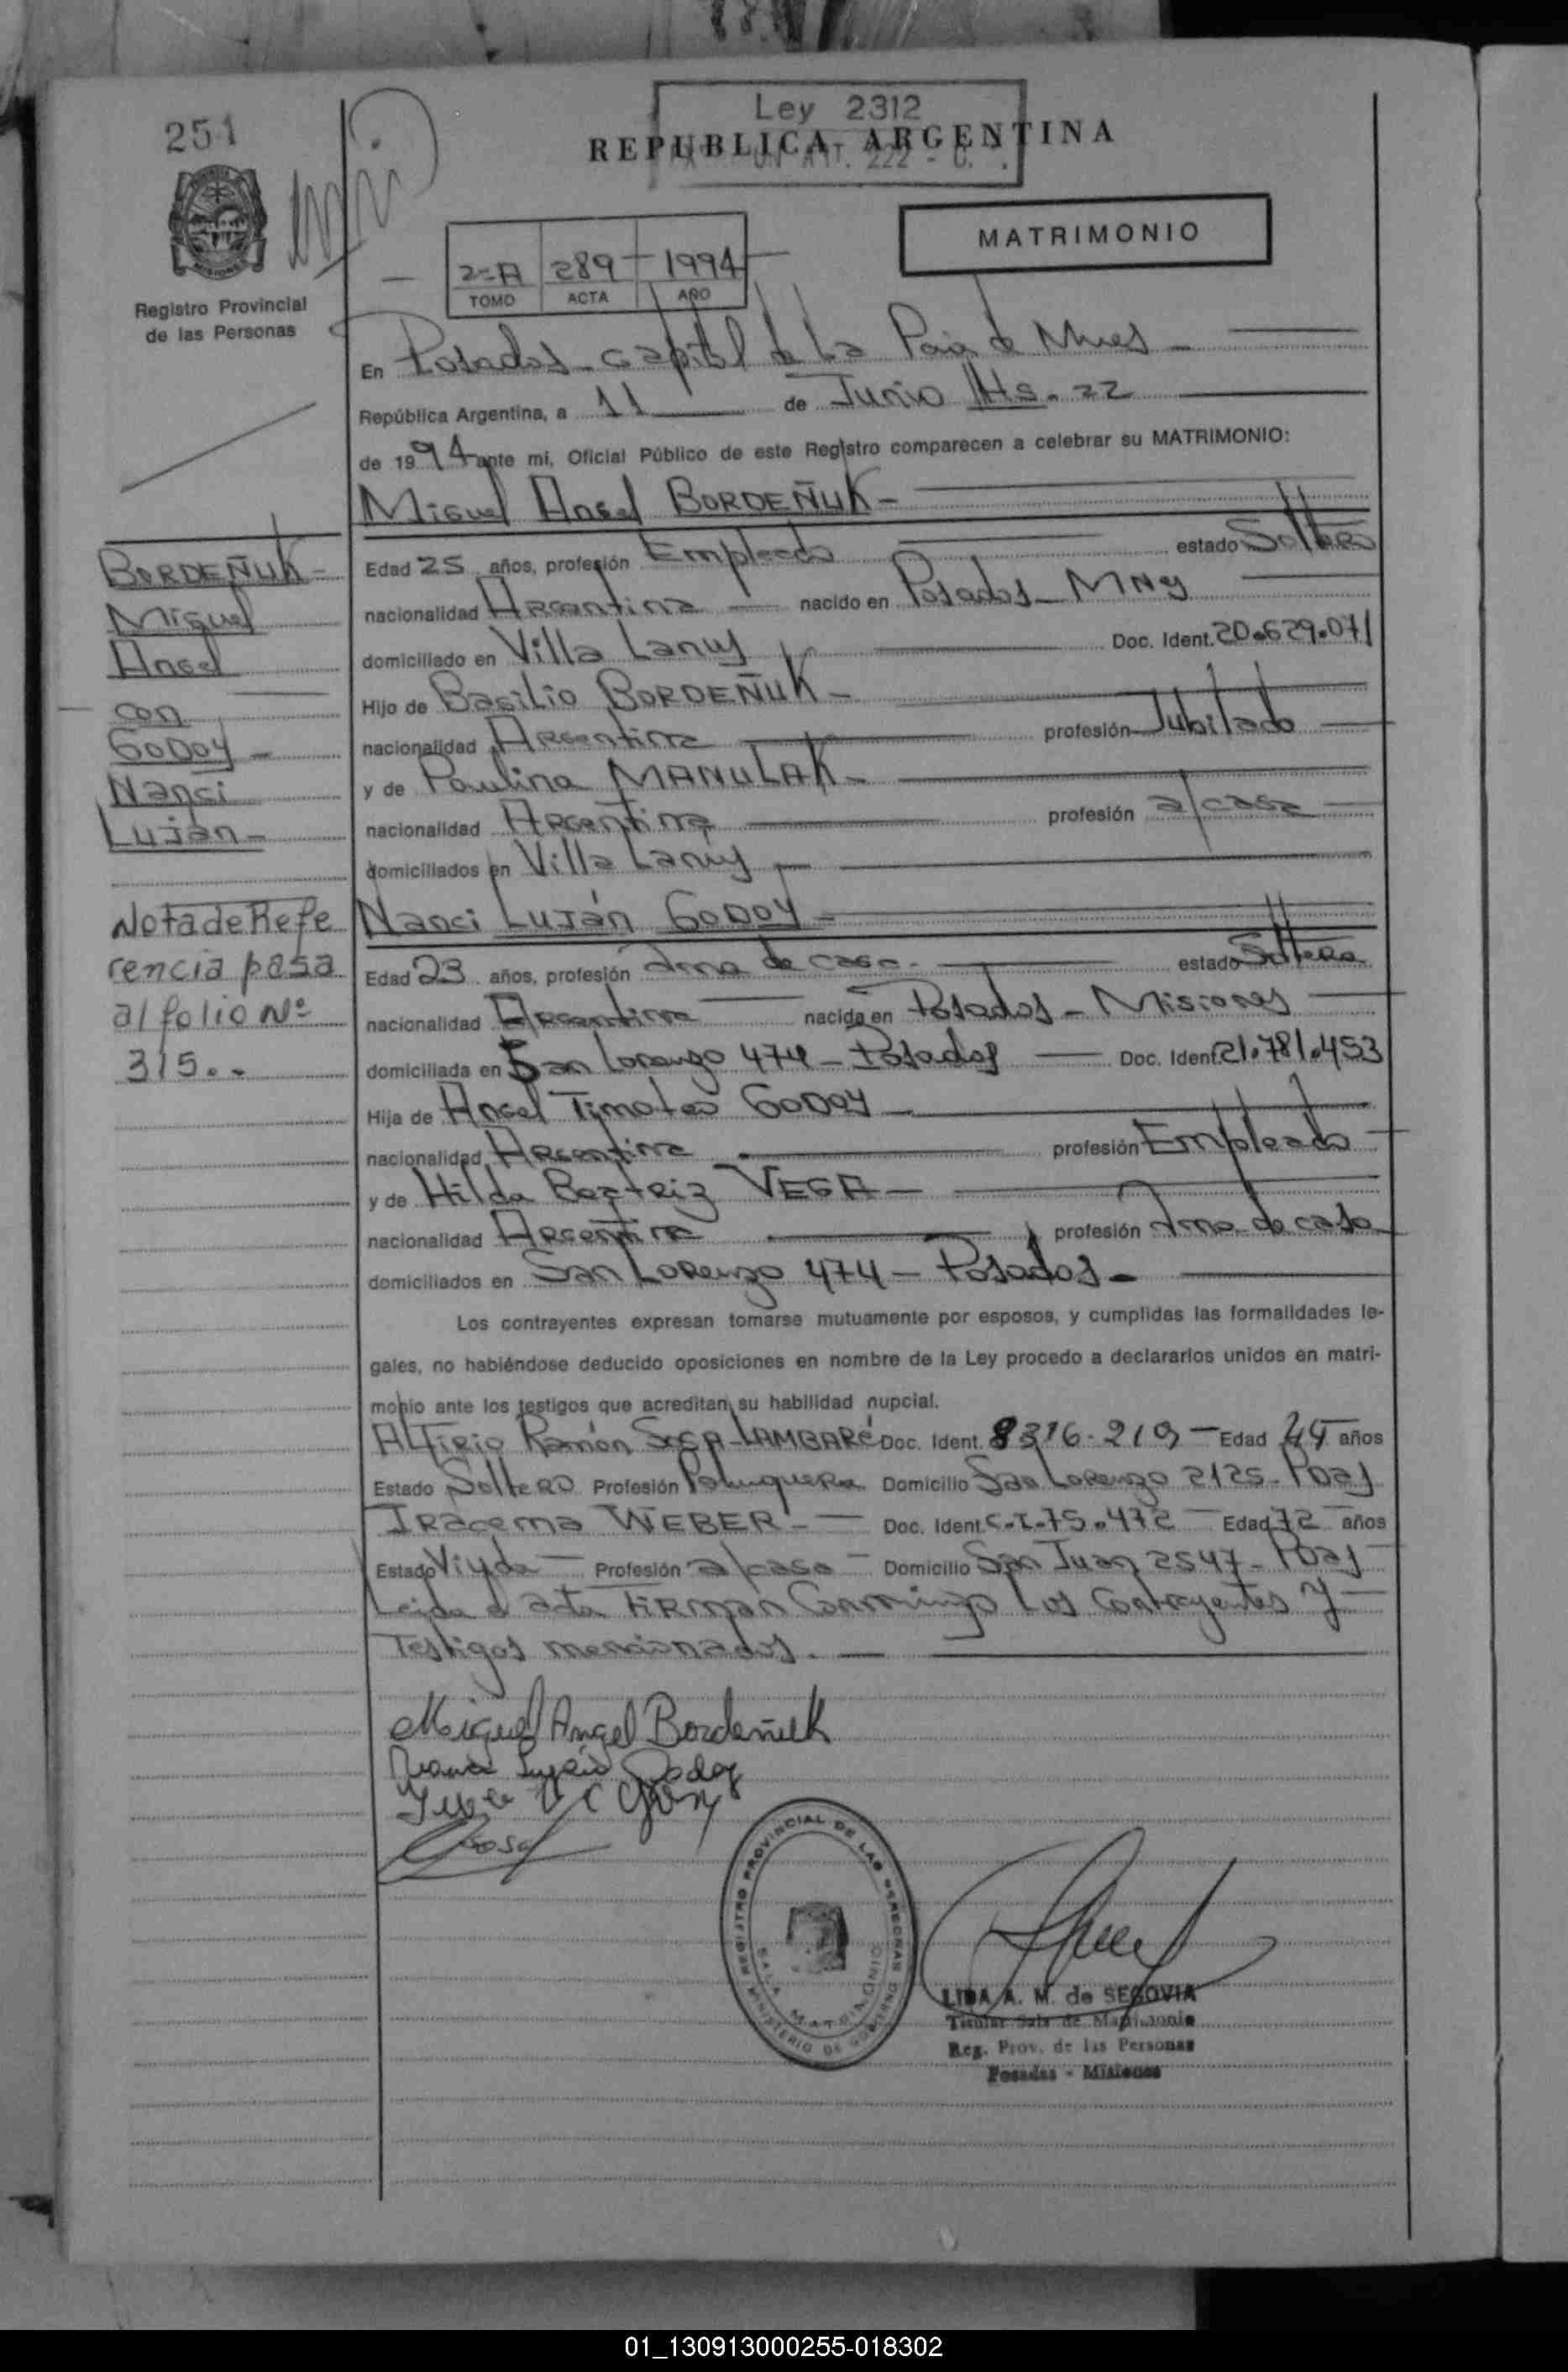 251
Ley 2312
REPUBLICA ARGENTINA
ART. 222 - C.
MATRIMONIO
2=A 289 1994
TOMO ACTA AÑO
Registro Provincial
de las Personas
En Posadas - capital de la Pcia de Mnes -
República Argentina, a 11 de Junio Hs. 22
de 1994 ante mi, Oficial Público de este Registro comparecen a celebrar su MATRIMONIO:
Miguel Angel BORDEÑUK -
BORDEÑUK -
Miguel
Angel
con
GODOY -
Nanci
Luján -
Nota de Refe
rencia pasa
al folio Nº
315..
Edad 25 años, profesión Empleado estado Soltero
nacionalidad Argentina nacido en Posadas - Mnes
domiciliado en Villa Lanus Doc. Ident. 20.629.071
Hijo de Basilio BORDEÑUK -
nacionalidad Argentina profesión Jubilado
y de Paulina MANULAK -
nacionalidad Argentina profesión a/casa
domiciliados en Villa Lanús
Nanci Luján GODOY -
Edad 23 años, profesión Ama de casa - estado Soltera
nacionalidad Argentina nacida en Posadas - Misiones
domiciliada en San Lorenzo 474 - Posadas Doc. Ident. 21.781.453
Hija de Angel Timoteo GODOY -
nacionalidad Argentina profesión Empleado
y de Hilda Beatriz VEGA -
nacionalidad Argentina profesión Ama de casa
domiciliados en San Lorenzo 474 - Posadas -
Los contrayentes expresan tomarse mutuamente por esposos, y cumplidas las formalidades le-
gales, no habiéndose deducido oposiciones en nombre de la Ley procedo a declararlos unidos en matri-
monio ante los testigos que acreditan su habilidad nupcial.
Ramón SOSA - LAMBARÉ Doc. Ident. 8316.219 - Edad 44 años
Estado Soltero Profesión Peluquero Domicilio San Lorenzo 2125 - Pdas
Iracema WEBER - Doc. Ident. C.I. 75.472 - Edad 72 años
Estado Viuda - Profesión a/casa - Domicilio San Juan 2547 - Pdas
Leida el acta Firman Conmingo Los Contrayentes y
Testigos mencionados.
Miguel Angel Bordeñuk
Godoy
Sosa
REGISTRO PROVINCIAL DE LAS PERSONAS
SALA MATRIMONIO
MINISTERIO DE GOBIERNO
LIDA A. M. de SEGOVIA
Titular Sala de Matrimonio
Reg. Prov. de las Personas
Posadas - Misiones
01_130913000255-018302